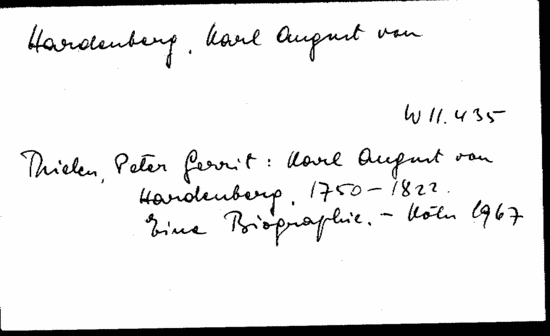 Hardenberg, Karl August von
W 11.435
Thielen, Peter Gerrit: Karl August von
Hardenberg, 1750-1822.
Eine Biographie. - Köln 1967